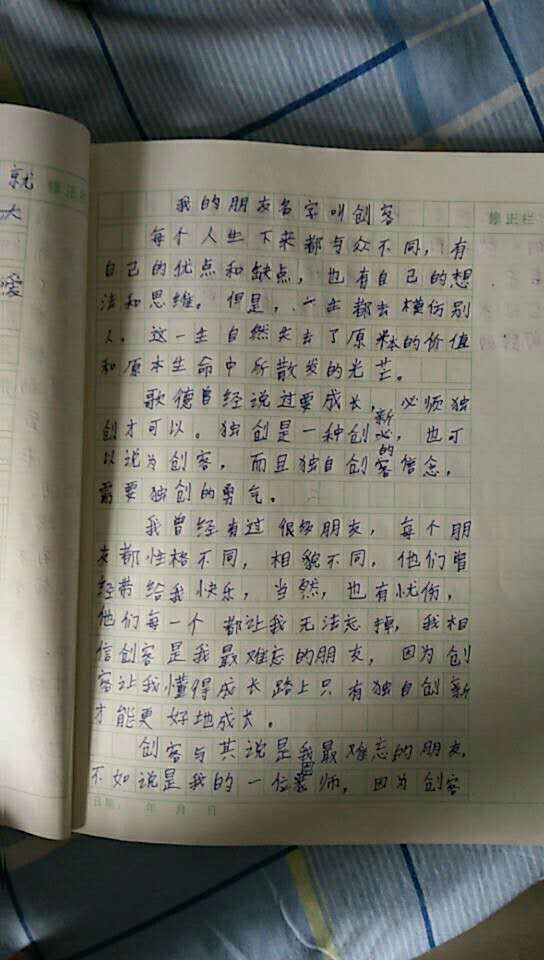 就
大
爱
修正栏
我的朋友名字叫创客
每个人生下来都与众不同，有
自己的优点和缺点，也有自己的想
法和思维。但是，一生都去模仿别
人，这一生自然失去了原本的价值
和原本生命中所散发的光芒。
歌德曾经说过要成长，必须独
创才可以。独创是一种创新，也可
以说为创客，而且独自创客的信念，
需要独创的勇气。
我曾经有过很多朋友，每个朋
友都性格不同，相貌不同，他们曾
经带给我快乐，当然，也有忧伤，
他们每一个都让我无法忘掉，我相
信创客是我最难忘的朋友，因为创
客让我懂得成长路上只有独自创新
才能更好地成大。
创客与其说是我最难忘的朋友，
不如说是我的一位老师，因为创客
日期： 年 月 日
修正栏